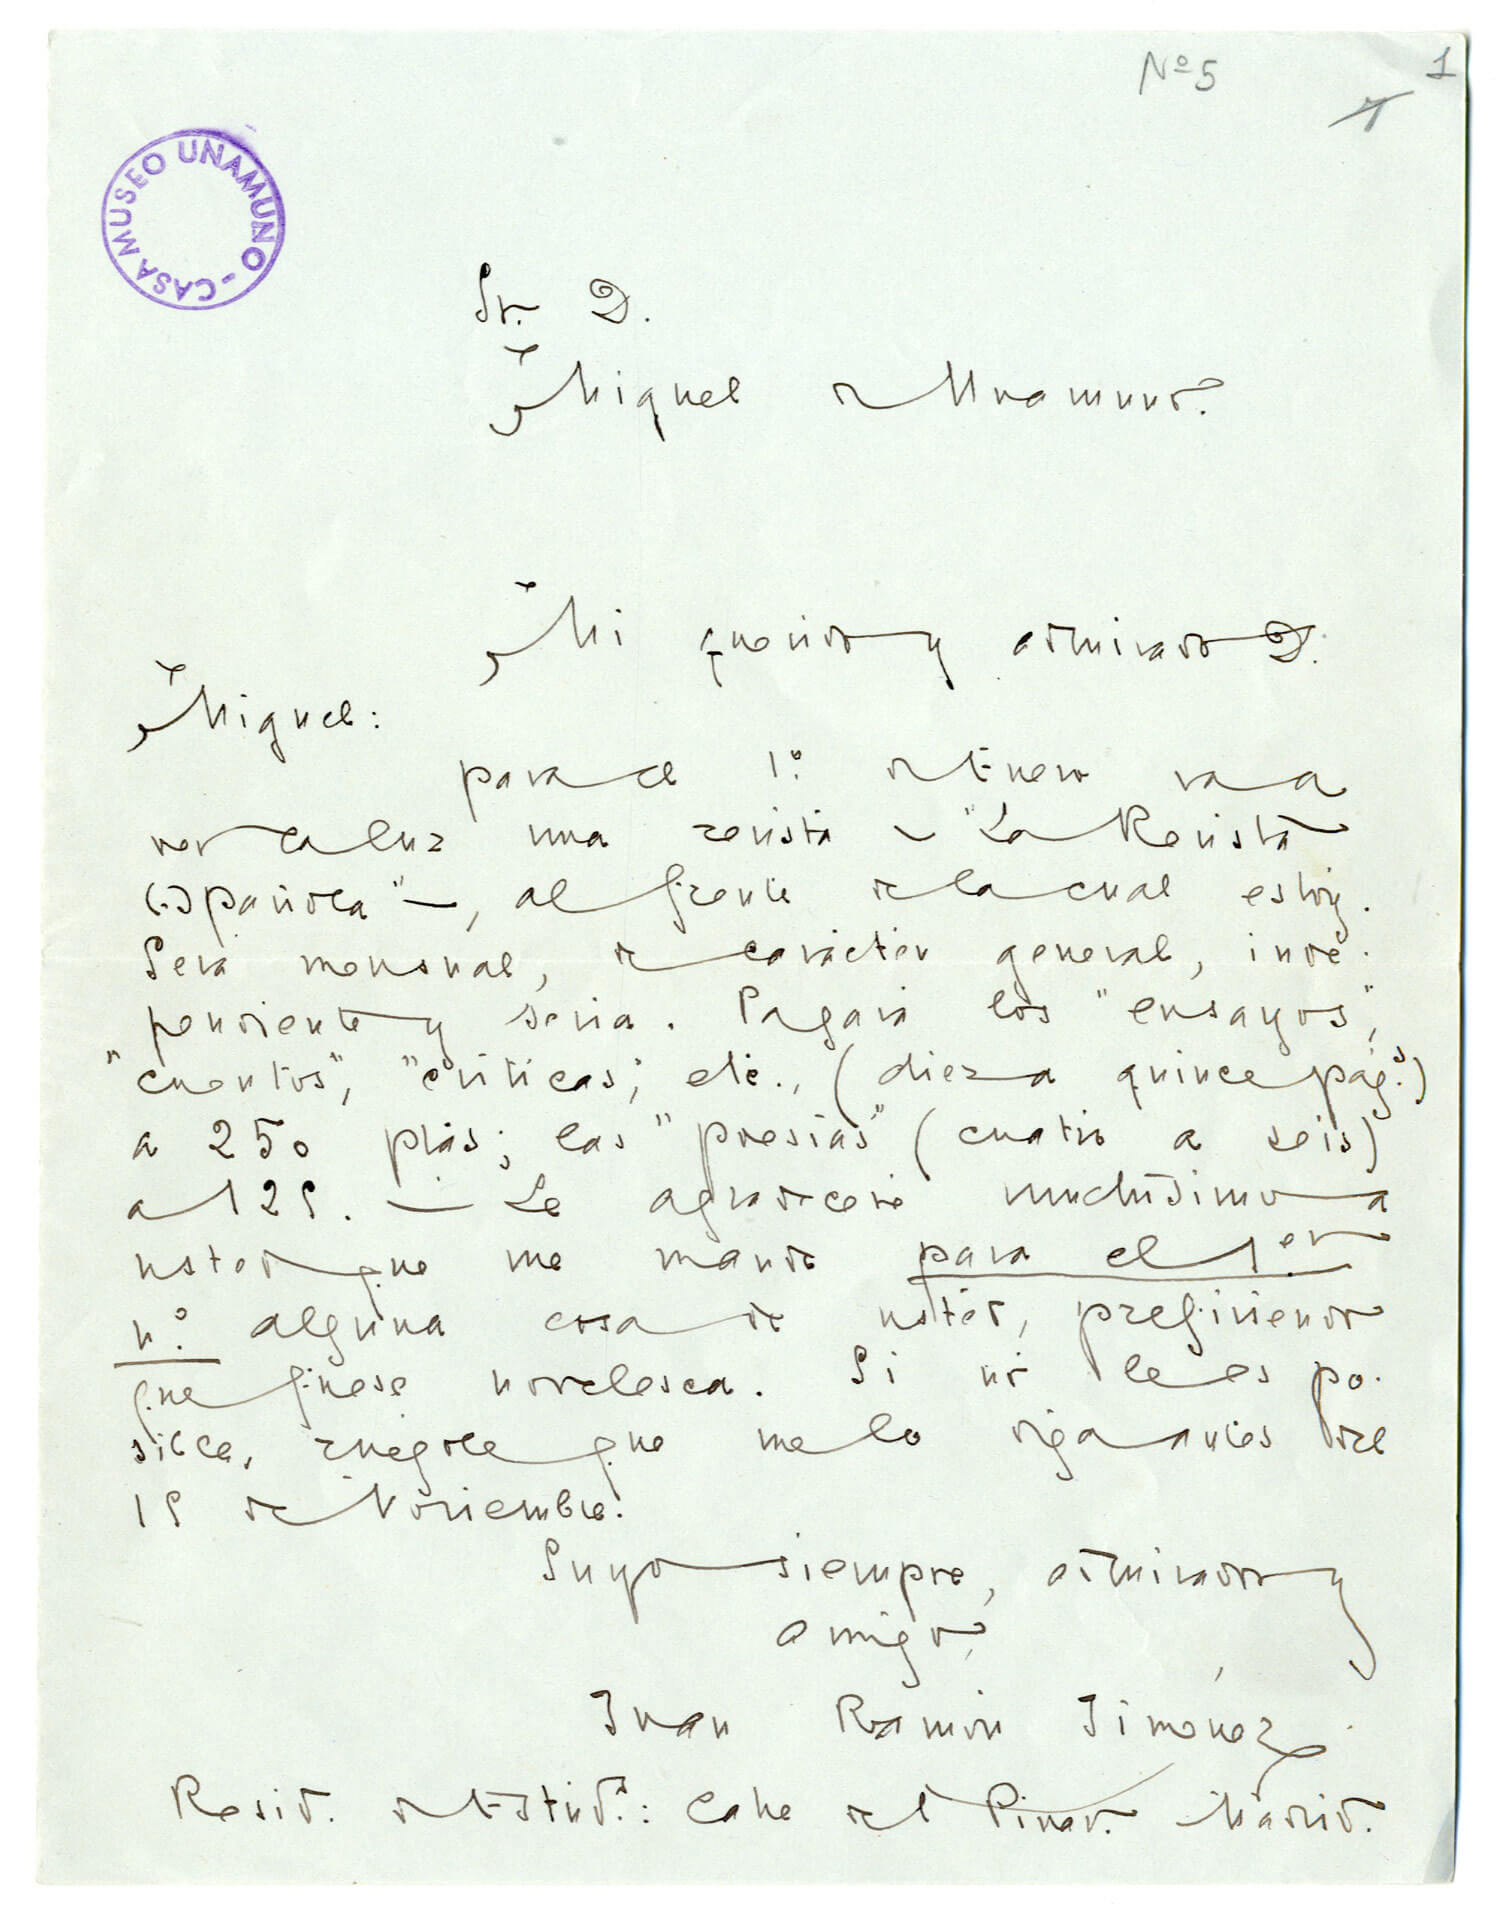 Nº 5
1
CASA MUSEO UNAMUNO -
Sr. D.
Miguel de Unamuno.
Mi querido y admirado D.
Miguel:
para el 1º de Enero va a
ver la luz una revista — "La Revista
Española" —, al frente de la cual estoy.
Será mensual, de carácter general, inde-
pendiente y seria. Pagará los "ensayos",
"cuentos", "críticas", etc., (diez a quince págs.)
a 250 ptas; las "poesías" (cuatro a seis)
a 125. — Le agradeceré muchísimo a
usted que me mande para el 1er
nº alguna cosa de usted, prefiriendo
que fuese novelesca. Si no le es po-
sible, ruégole que me lo diga antes del
15 de Noviembre.
Suyo siempre, admirador y
amigo,
Juan Ramón Jiménez
Resid. de Estuds.: Calle del Pinar. Madrid.